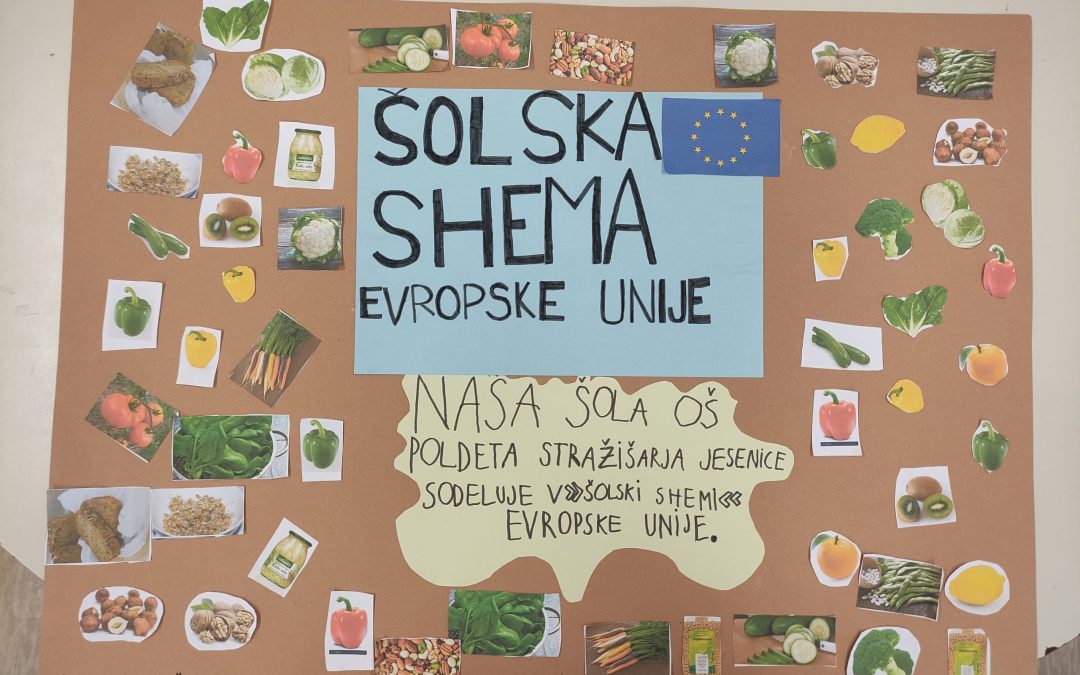 ŠOLSKA
SHEMA
EVROPSKE UNIJE
NAŠA ŠOLA OŠ
POLDETA STRAŽIŠARJA JESENICE
SODELUJE V »ŠOLSKI SHEMI«
EVROPSKE UNIJE.